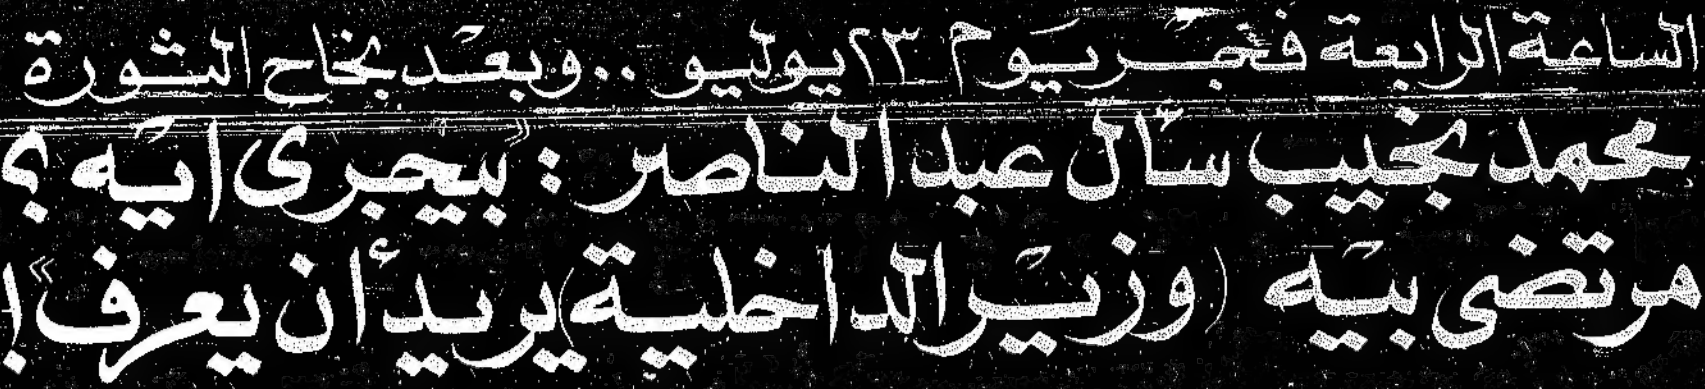 الساعة الرابعة فجر يوم ٢٣ يوليو .. وبعد نجاح الثورة
محمد نجيب سأل عبد الناصر : "بيجرى ايه ؟
مرتضى بيه (وزير الداخلية) يريد أن يعرف" !